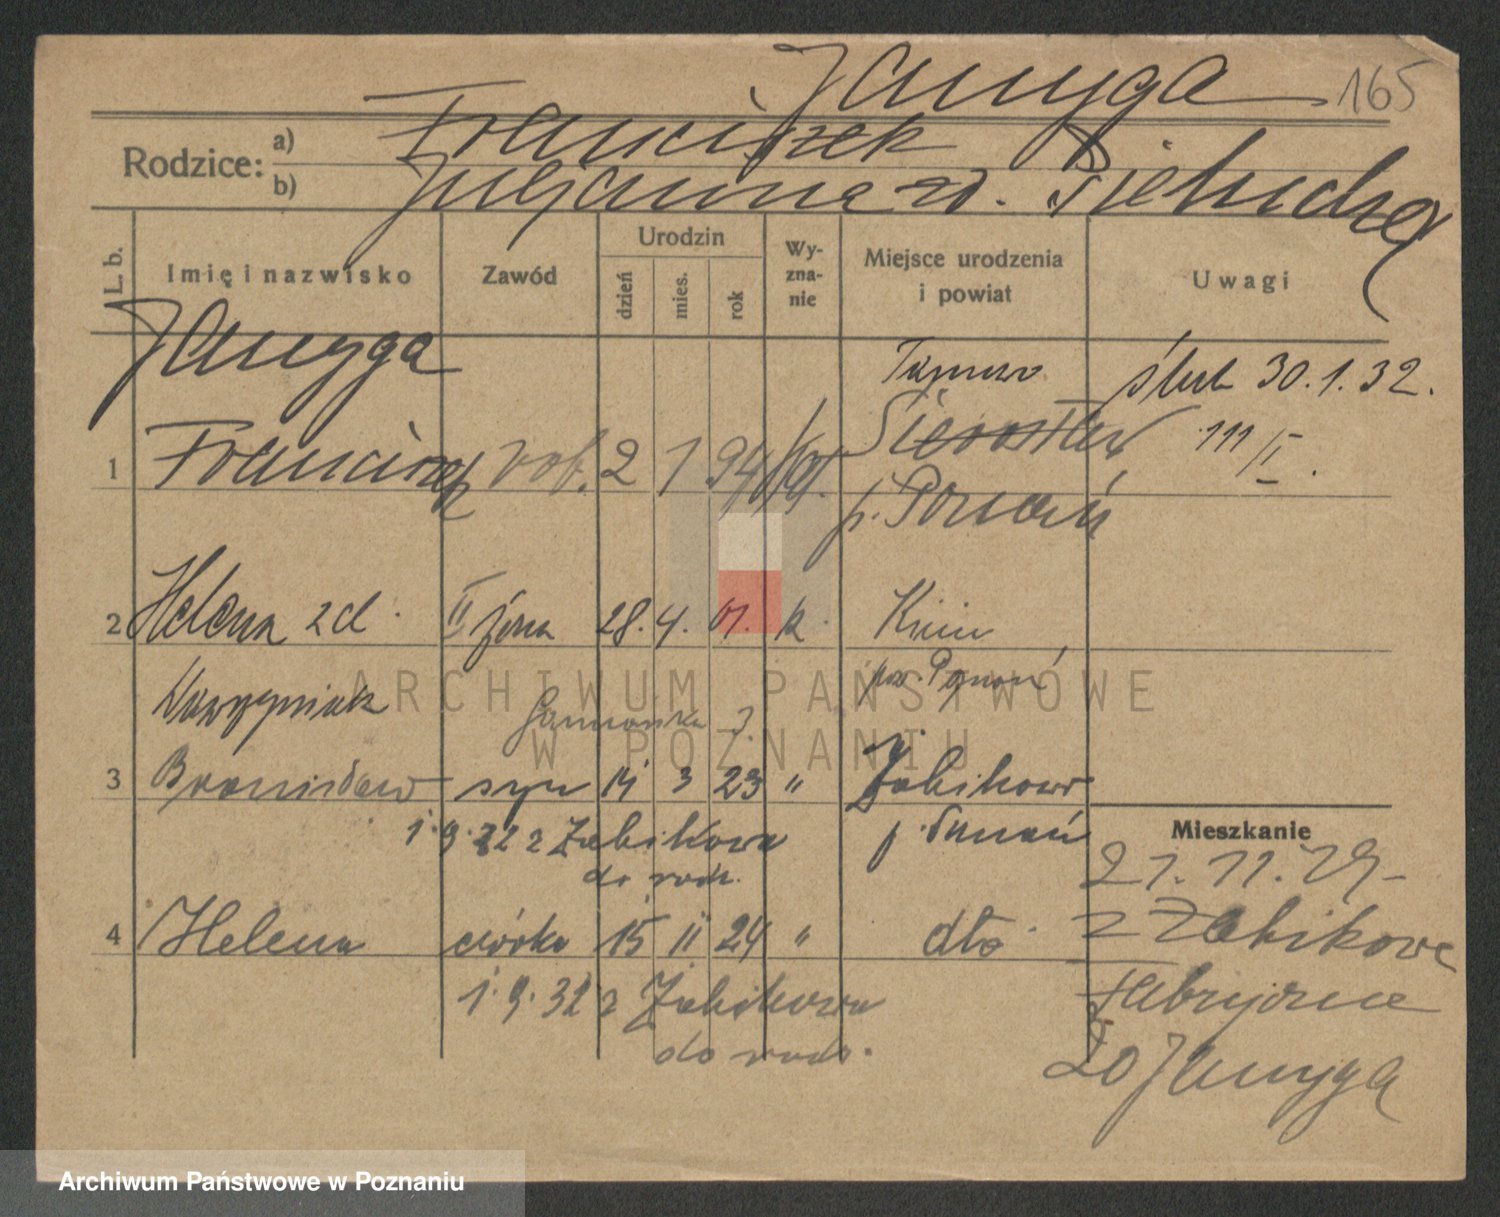 165
Rodzice: a) Franciszek
b) Juljanna zd.
L. b.
Imię i nazwisko
Zawód
Urodzin
dzień
mies.
rok
Wy-
zna-
nie
Miejsce urodzenia
i powiat
Uwagi
ślub 30.1.32.
111/I.
1 Franciszek rob. 2 1 94
p. Poznań
2 Helena zd. II żona 28. 4. 01. k.
pow. Poznań
3 Bronisław syn 14 3 23 " Żabikowo
p. Poznań
1.9.32 z Żabikowa
do rodz.
4 Helena córka 15 11 24 " dto
1.9.32 z Żabikowa
do rodz.
Mieszkanie
21.11.29
z Żabikowa
Fabryczna
20
ARCHIWUM PAŃSTWOWE
W POZNANIU
Archiwum Państwowe w Poznaniu